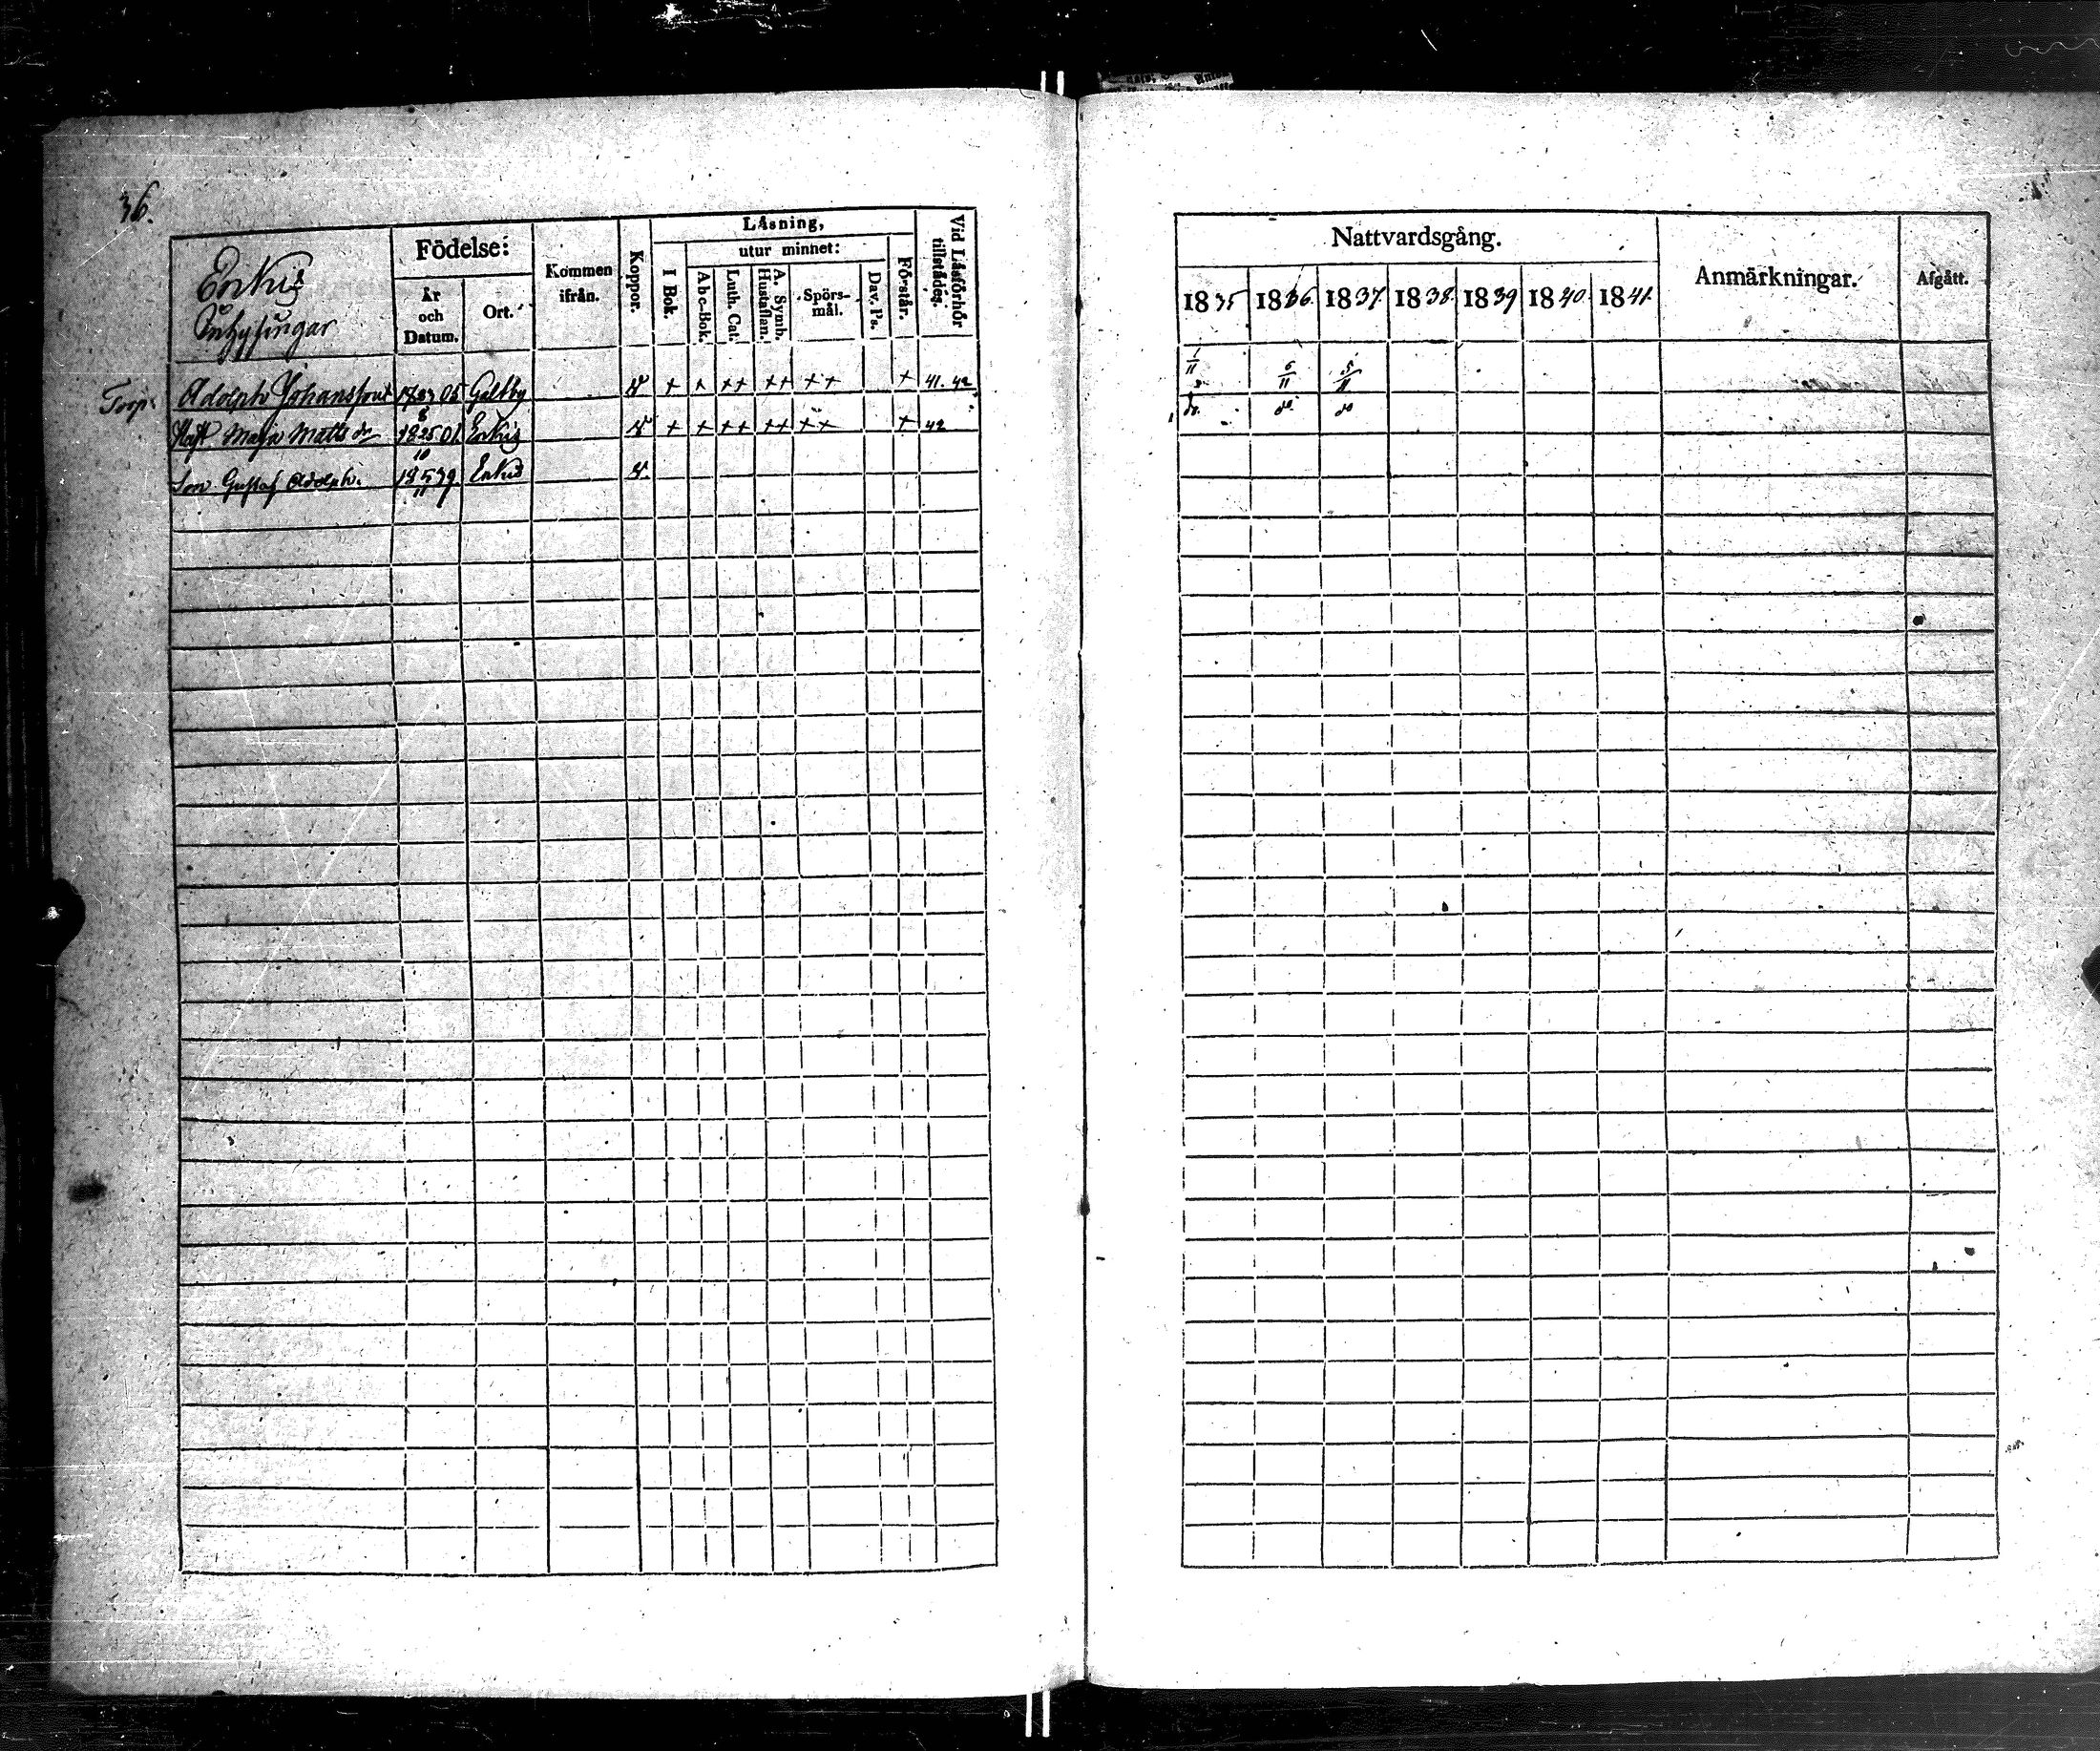 36.
Enkis
Inhysingar
Födelse:
År och Datum.
Ort.
Kommen ifrån.
Koppor.
Läsning,
I Bok.
utur minnet:
Abc-Bok.
Luth. Cat.
A. Symb. Hustaflan.
Spörsmål.
Dav. Ps.
Förstår.
Vid Läsförhör tillstädes.
Nattvardsgång.
1835 1836. 1837. 1838. 1839 1840. 1841.
Anmärkningar.
Afgått.
Torp. Adolph Johansson 05 Galtby + + ++ ++ ++ + 41. 42 6/11 5/11
Hust Maja Matts dr 1825/10 01 Enkis + + ++ ++ ++ + 42 do. do do
Son Gustaf Adolph. 185/11 39 Enkis